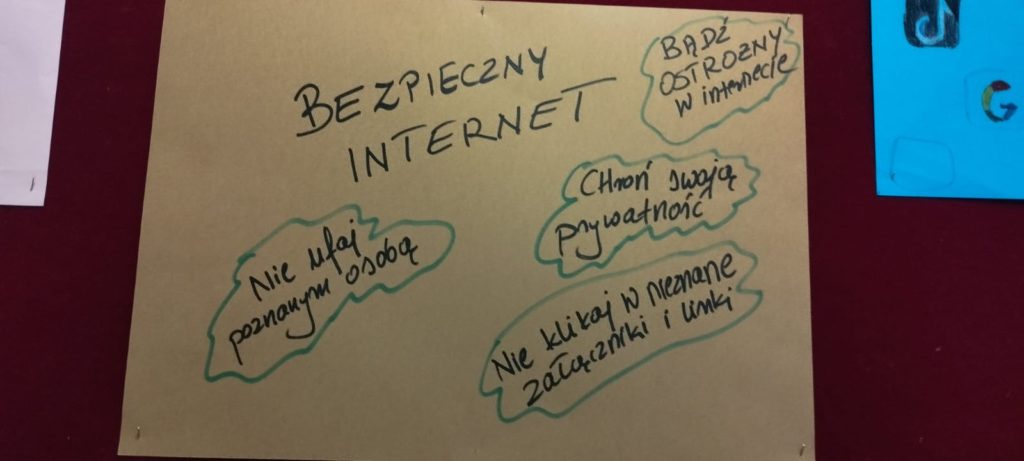 BEZPIECZNY
INTERNET
BĄDŹ
OSTROZNY
w internecie
CHroń swają
prywatność
Nie ufaj
poznanym osobą
Nie klikaj w nieznane
załączniki i linki
G